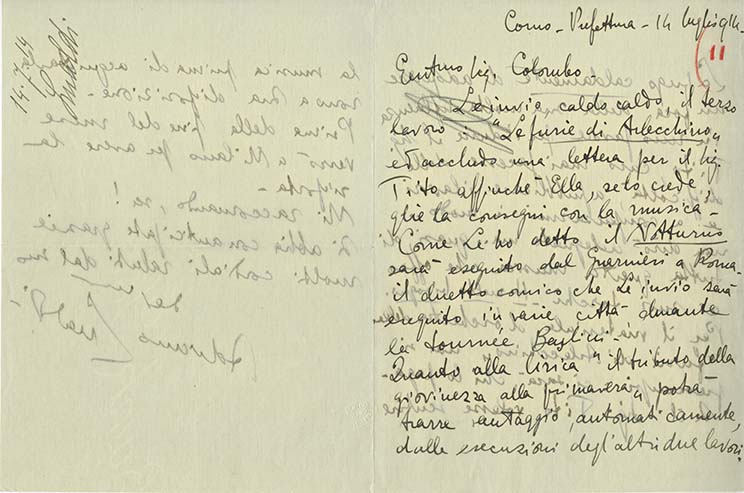 14.7.914
Lualdi
Como - Prefettura - 14 luglio 914 -
11
Egr. Sig. Colombo -
Le invio caldo caldo il terzo
lavoro: "Le furie di Arlecchino"
ed accludo una lettera per il Sig.
Tito, affinchè Ella, se lo crede,
glie la consegni con la musica -
Come Le ho detto il Notturno
sarà eseguito dal Guarnieri a Roma -
il duetto comico che Le invio sarà
eseguito in varie città durante
la tournée
Quanto alla lirica "il tributo della
giovinezza alla primavera" potrà
trarre vantaggio, automaticamente,
dalle esecuzioni degl'altri due lavori.
la musica prima di
sono a Sua disposizione -
Prima della fine del mese
verrò a Milano per avere la
risposta -
Mi raccomando, ve!
Si abbia con anticipate grazie
molti cordiali saluti dal suo
dev mo
Adriano Lualdi